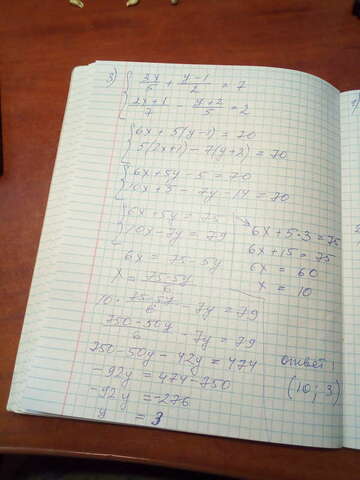 3) { 3x/5 + y-1/2 = 7
2x+1/7 - y+2/5 = 2
{ 6x + 5(y-1) = 70
5(2x+1) - 7(y+2) = 70
{ 6x + 5y - 5 = 70
10x + 5 - 7y - 14 = 70
{ 6x + 5y = 75
10x - 7y = 79
6x = 75 - 5y
x = 75-5y/6
10 · 75-5y/6 - 7y = 79
750-50y/6 - 7y = 79
750 - 50y - 42y = 474
-92y = 474 - 750
-92y = -276
y = 3
6x + 5·3 = 75
6x + 15 = 75
6x = 60
x = 10
ответ:
(10; 3)